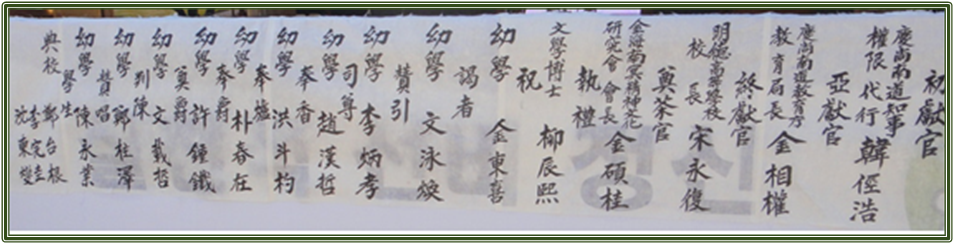 初獻官
慶尙南道知事
權限代行 韓俓浩
亞獻官
慶尙南道教育厅
教育局長 金相權
終獻官
明德高等學校
校長 宋永俊
奠茶官
金海南冥精神文化
研究會會長 金碩桂
執禮
文學博士 柳辰熙
祝
幼學 金東喜
謁者
幼學 文泳焕
贊引
幼學 李炳孝
司尊
幼學 趙漢哲
奉香
幼學 洪斗杓
奉爐
幼學 朴春在
奉爵
幼學 許鍾鐵
奠爵
幼學 文載哲
判陳
幼學 鄭柱澤
贊唱
幼學 陳永業
學生
典校 鄭台根
李完圭
沈東燮